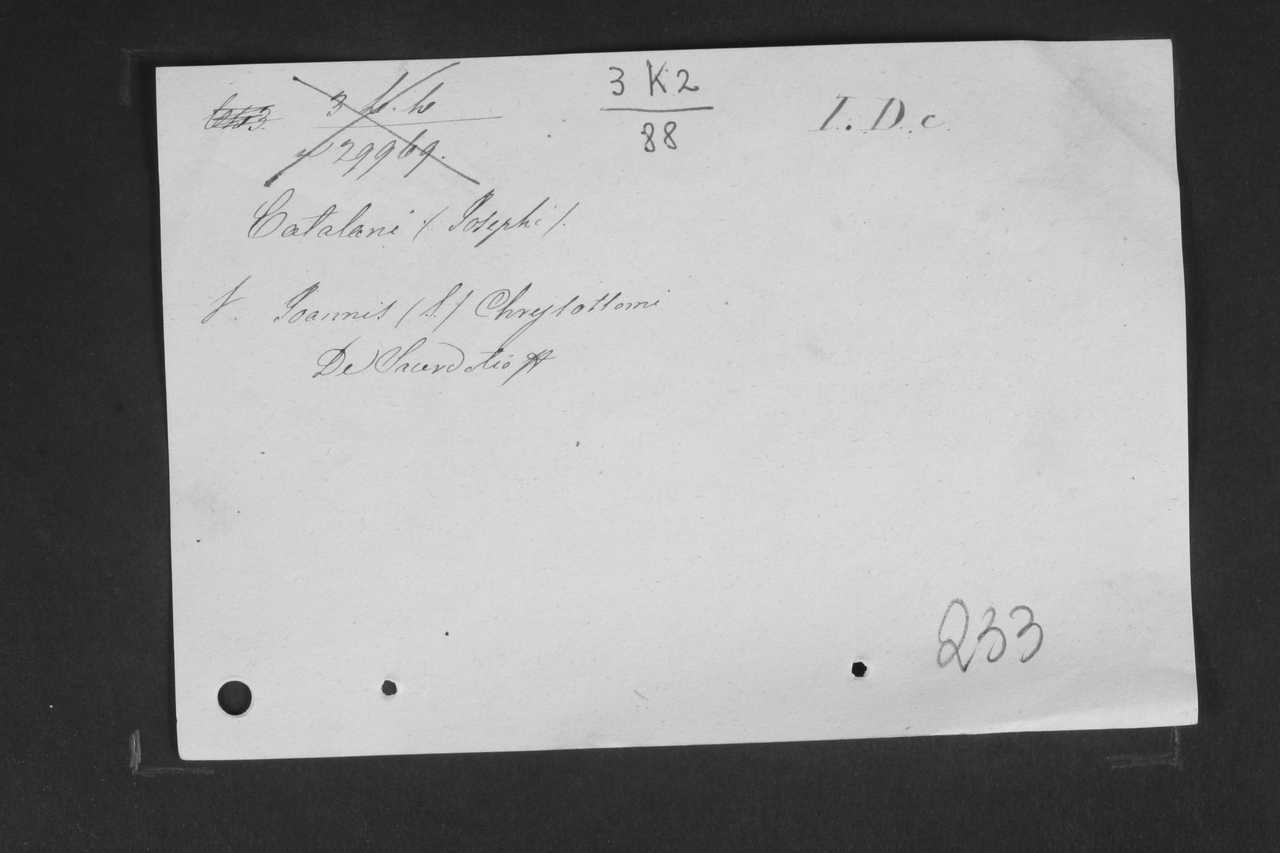 3 K 2
88
I. D. c.
29969.
Catalani (Josephi).
V. Joannis (S.) Chrysostomi
De Sacerdotio
233